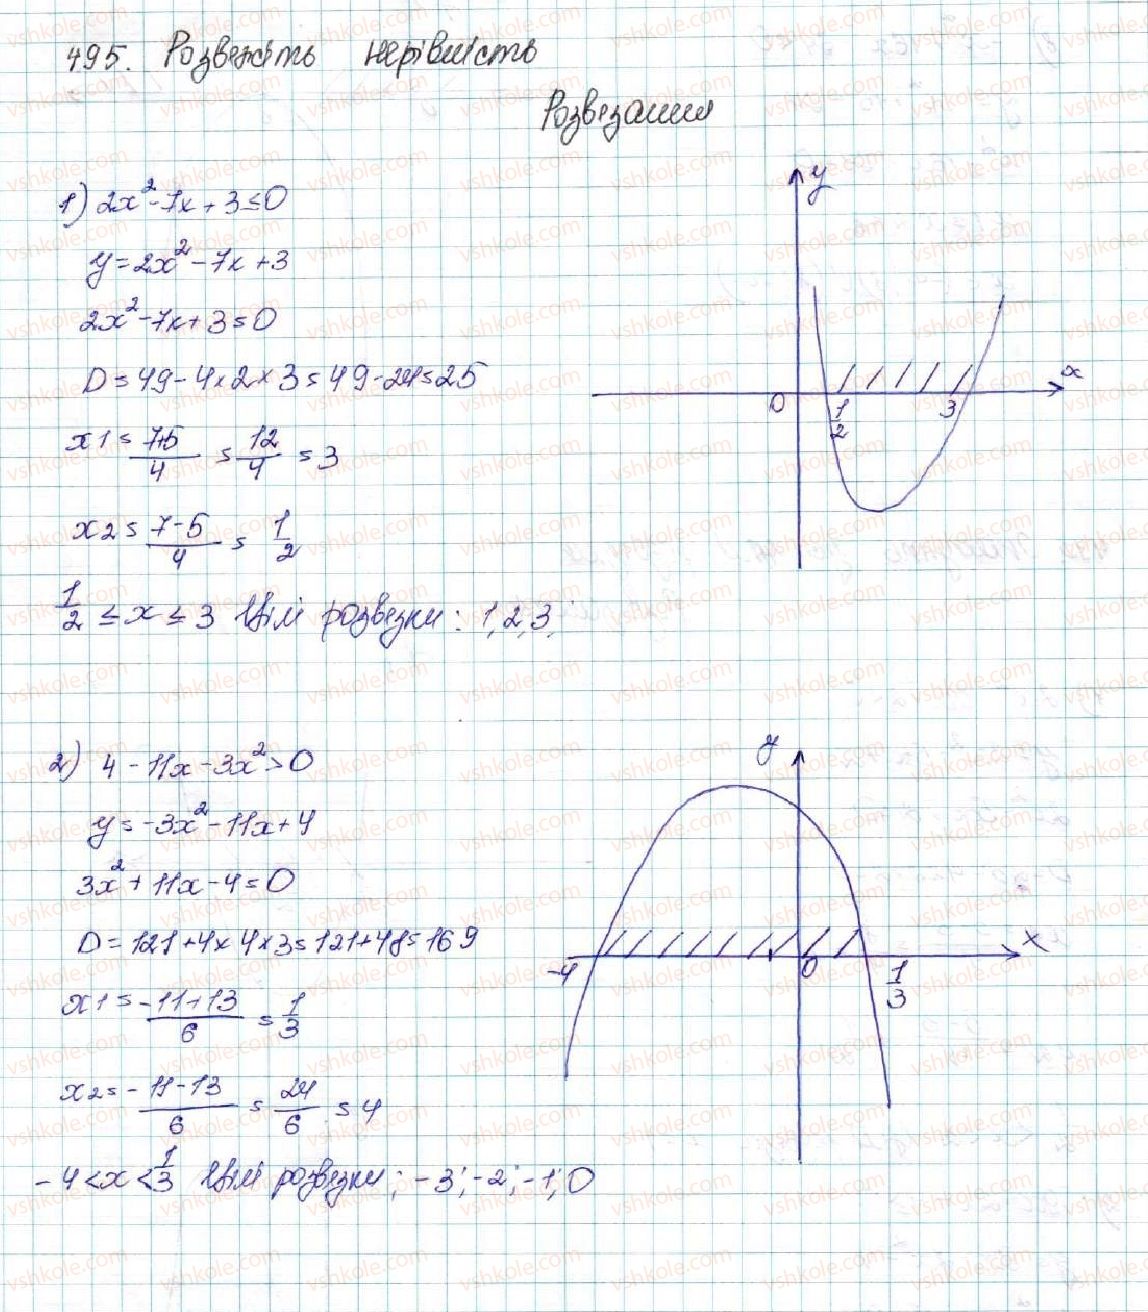 495. Розвежіть нерівність
Розвезання
1) 2x² - 7x + 3 ≤ 0
y = 2x² - 7x + 3
2x² - 7x + 3 = 0
D = 49 - 4 × 2 × 3 = 49 - 24 = 25
x1 = 7+5/4 = 12/4 = 3
x2 = 7-5/4 = 1/2
1/2 ≤ x ≤ 3 Цілі розвезки: 1, 2, 3;
y
x
0
1/2
3
2) 4 - 11x - 3x² > 0
y = -3x² - 11x + 4
3x² + 11x - 4 = 0
D = 121 + 4 × 4 × 3 = 121 + 48 = 169
x1 = -11+13/6 = 1/3
x2 = -11-13/6 = 24/6 = 4
-4 < x < 1/3 Цілі розвезки; -3; -2; -1; 0
y
x
-4
0
1/3
vshkole.com